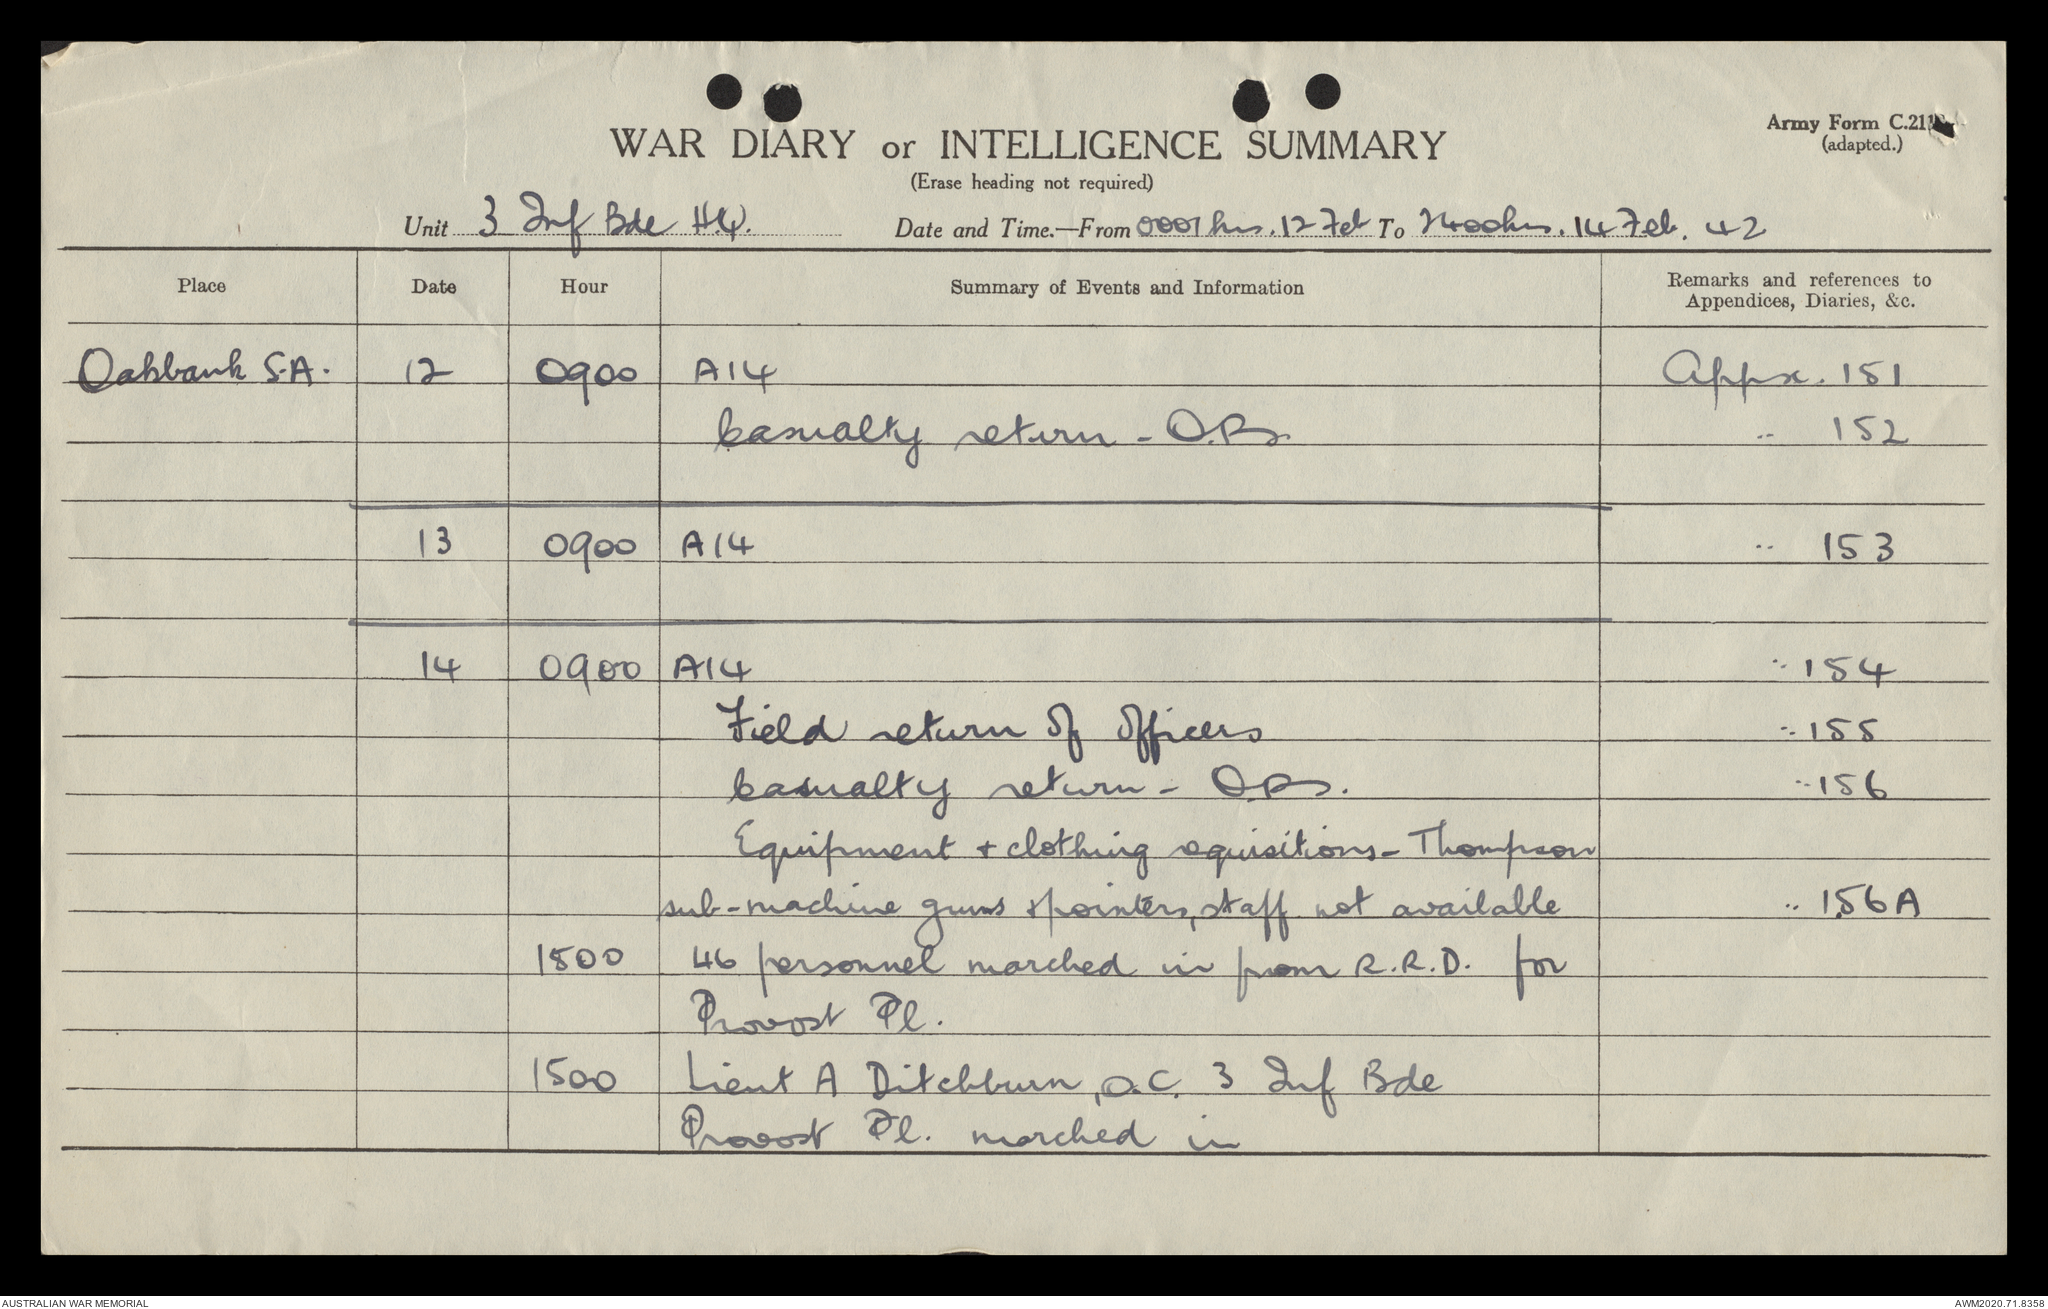 Army Form C.211
(adapted.)
WAR DIARY or INTELLIGENCE SUMMARY
(Erase heading not required)
Unit 3 Inf Bde H.Q. Date and Time.—From 0001 hrs. 12 Feb To 2400hrs. 14 Feb. 42
Place Date Hour Summary of Events and Information Remarks and references to
Appendices, Diaries, &c.
Oakbank S.A. 12 0900 A14 Appx. 151
Casualty return - O.Rs. " 152
13 0900 A14 " 153
14 0900 A14 " 154
Field return of officers " 155
Casualty return - O.Rs. " 156
Equipment + clothing requisitions - Thompson
sub-machine guns & pointers, staff not available " 156A
1500 46 personnel marched in from R.R.D. for
Provost Pl.
1500 Lieut A Ditchburn, O.C. 3 Inf Bde
Provost Pl. marched in
AUSTRALIAN WAR MEMORIAL AWM2020.71.8358